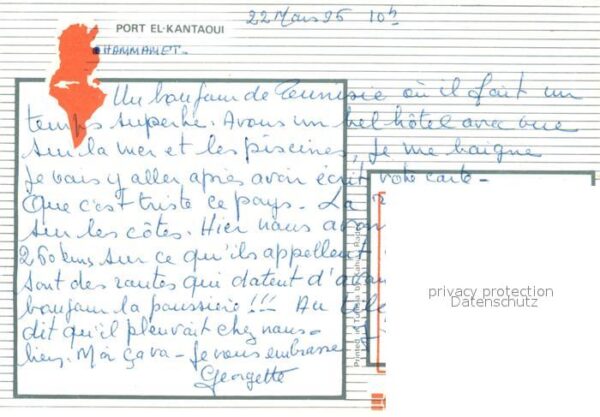 22 Mars 95 10h
PORT EL-KANTAOUI
HAMMAMET-
Un bonjour de Tunisie où il fait un
temps superbe. Avons un bel hôtel avec vue
sur la mer et les piscines, je me baigne
Je vais y aller après avoir écrit votre carte-
Que c'est triste ce pays. La
sur les côtes. Hier nous avons
260 kms sur ce qu'ils appellent
sont des routes qui datent d'avan
bonjour la poussière !!! Au télé
dit qu'il pleuvait chez nous-
bien. Moi ça va - Je vous embrasse
Georgette
Printed in Tunisia by
privacy protection
Datenschutz